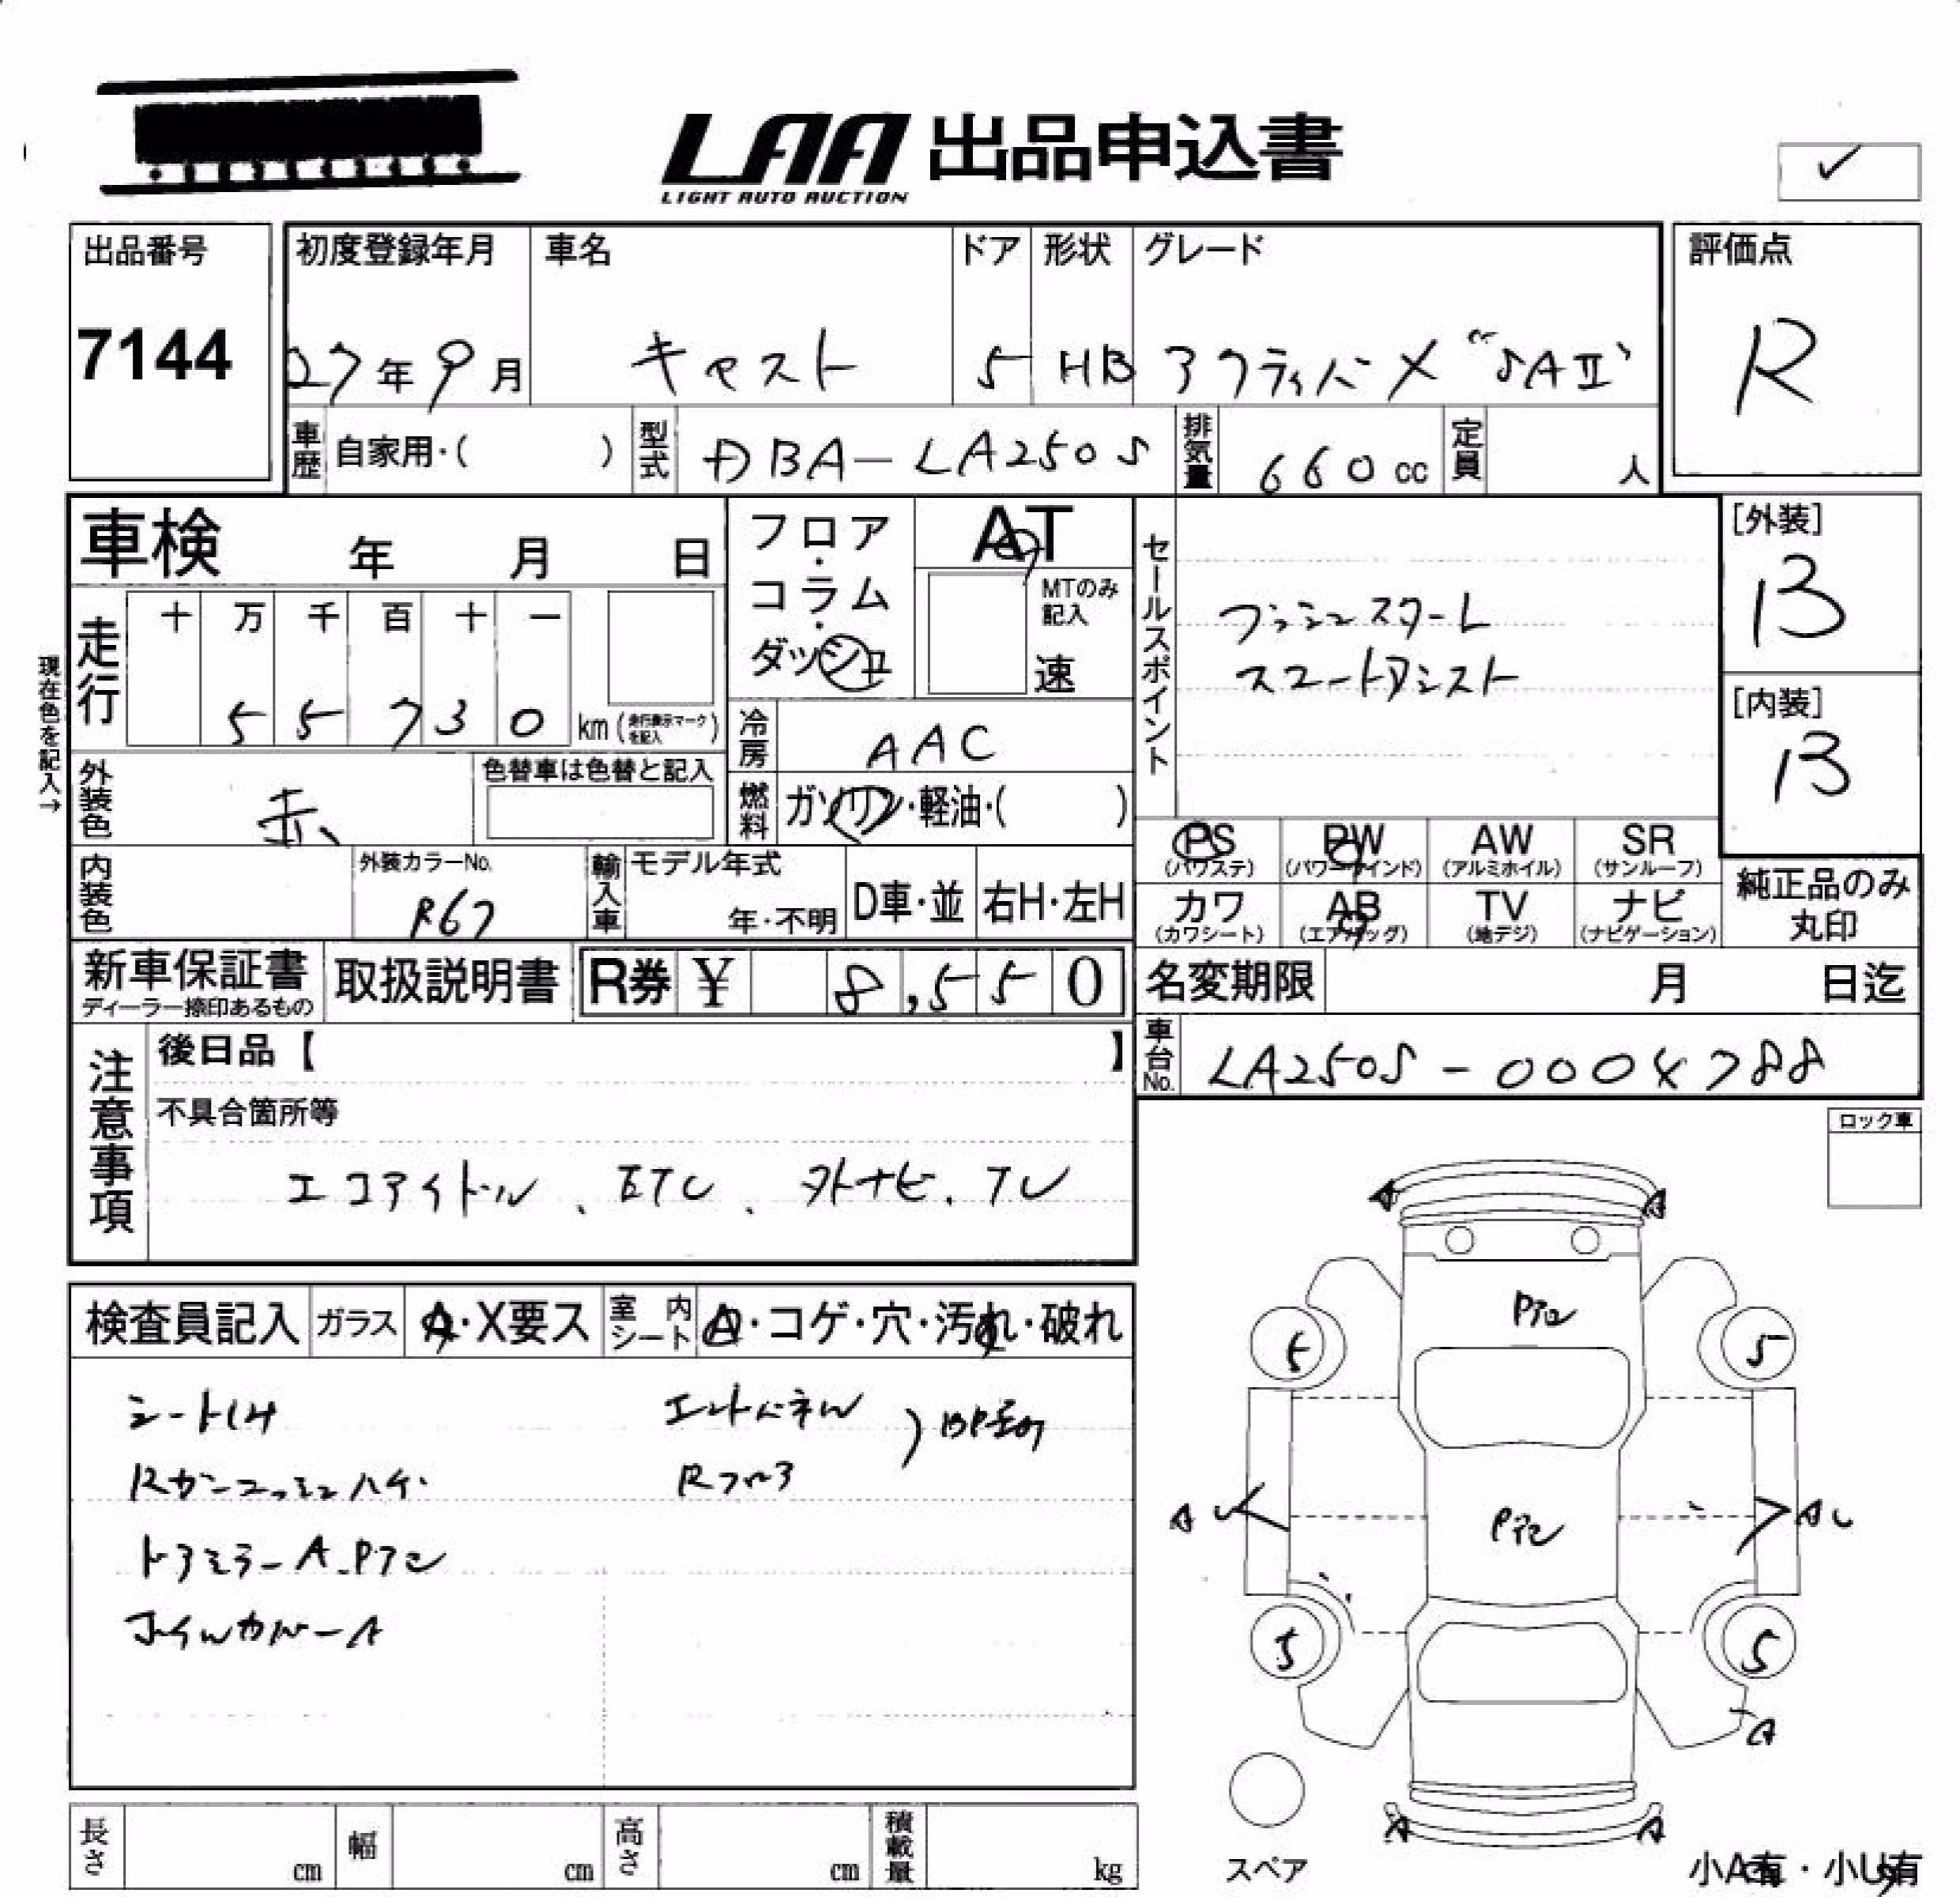 LAA 出品申込書
LIGHT AUTO AUCTION
✓
出品番号
7144
初度登録年月
27年9月
車名
キャスト
ドア
5
形状
HB
グレード
アクティバ X "SAⅡ"
評価点
R
車歴 自家用・( )
型式 DBA-LA250S
排気量 660cc
定員 人
車検 年 月 日
フロア・コラム・ダッシュ
AT
MTのみ記入
速
セールスポイント
プッシュスタート
スマートアシスト
[外装]
B
[内装]
B
現在色を記入→
走行 十 万 千 百 十 一
55730 km (走行表示マークを記入)
冷房 AAC
外装色 赤
色替車は色替と記入
燃料 ガソリン・軽油・( )
PS (パワステ)
PW (パワーウインド)
AW (アルミホイル)
SR (サンルーフ)
カワ (カワシート)
AB (エアバッグ)
TV (地デジ)
ナビ (ナビゲーション)
純正品のみ丸印
内装色
外装カラーNo.
R67
輸入車
モデル年式
年・不明
D車・並
右H・左H
新車保証書
ディーラー捺印あるもの
取扱説明書
R券 ¥ 8,550
名変期限 月 日迄
車台No. LA250S-0004788
注意事項
後日品【 】
不具合箇所等
エコアイドル、ETC、外ナビ、TV
ロック車
検査員記入
ガラス A・X要ス
室内シート A・コゲ・穴・汚れ・破れ
シートシミ
エンドパネル
Rフロア
ドアミラーA.Pアセ
ホイルカバーA
Pアセ
5
5
AU
Pアセ
AU
5
5
A
A
A
A
A
スペア
小A有・小U有
長さ cm
幅 cm
高さ cm
積載量 kg